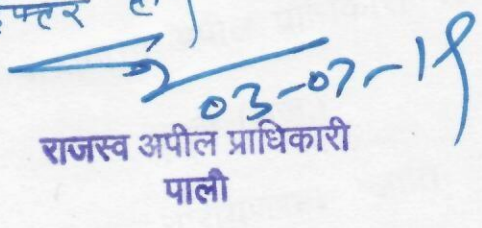 फ्तर हो
03-07-19
राजस्व अपील प्राधिकारी
पाली